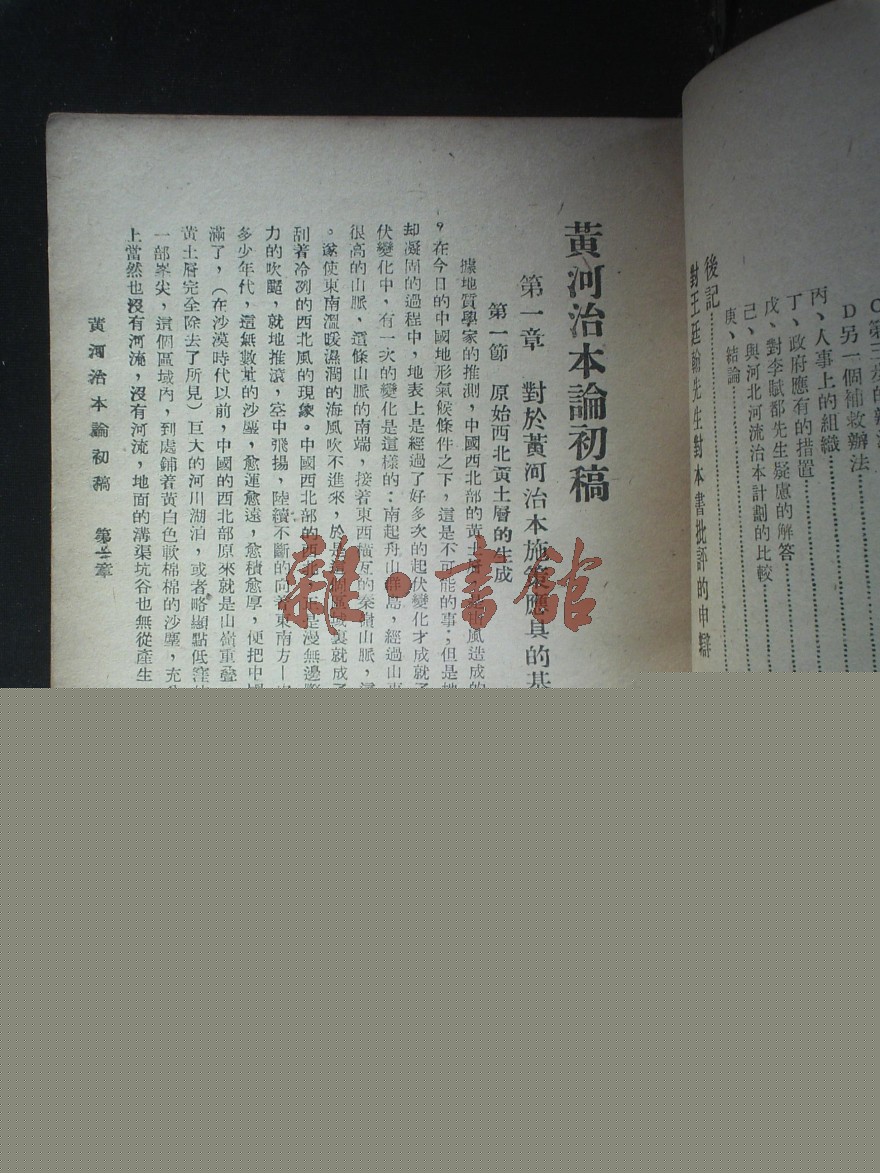 後記
對王廷翰先生對本書批評的申辯
D另一個補救辦法
丙、人事上的組織
丁、政府應有的措置
戊、對李賦都先生疑慮的解答
己、與河北河流治本計劃的比較
庚、結論
黃河治本論初稿
第一章 對於黃河治本施策應具的基
第一節 原始西北黃土層的生成
據地質學家的推測,中國西北部的黃土層 風造成的
,在今日的中國地形氣候條件之下,這是不可能的事;但是
却凝固的過程中,地表上是經過了好多次的起伏變化才成就了
伏變化中,有一次的變化是這樣的:南起舟山群島,經過山東
很高的山脈、這條山脈的南端,接着東西橫亙的秦嶺山脈,這
。遂使東南溫暖濕潤的海風吹不進來,於是 區域裏就成了
刮着冷冽的西北風的現象。中國西北部的西北 是漫無邊際
力的吹颺,就地推滾,空中飛揚,陸續不斷的向着東南方
多少年代,這無數量的沙塵,愈運愈遠,愈積愈厚,便把中國
滿了,(在沙漠時代以前,中國的西北部原來就是山嶺重疊
黃土層完全除去了所見)巨大的河川湖泊,或者略顯點低窪
一部峯尖,這個區域內,到處鋪着黃白色軟棉棉的沙塵,充
上當然也沒有河流,沒有河流,地面的溝渠坑谷也無從產生
黃河治本論初稿 第一章
雜·書館